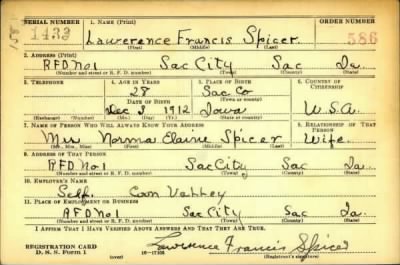 SERIAL NUMBER 1. NAME (Print) ORDER NUMBER
1433 Lawerence Francis Spicer 586
(First) (Middle) (Last)
2. ADDRESS (Print)
RFD No 1 Sac City Sac Ia.
(Number and street or R. F. D. number) (Town) (County) (State)
3. TELEPHONE 4. AGE IN YEARS 5. PLACE OF BIRTH 6. COUNTRY OF CITIZENSHIP
28 Sac Co
DATE OF BIRTH (Town or county)
Dec 8 1912 Iowa U.S.A.
(Exchange) (Number) (Mo.) (Day) (Yr.) (State or country)
7. NAME OF PERSON WHO WILL ALWAYS KNOW YOUR ADDRESS 8. RELATIONSHIP OF THAT PERSON
Mrs Norma Elaine Spicer Wife
(Mr., Mrs., Miss) (First) (Middle) (Last)
9. ADDRESS OF THAT PERSON
RFD No 1 Sac City Sac Ia.
(Number and street or R. F. D. number) (Town) (County) (State)
10. EMPLOYER'S NAME
Self.
11. PLACE OF EMPLOYMENT OR BUSINESS
RFD No 1 Sac City Sac Ia
(Number and street or R. F. D. number) (Town) (County) (State)
I AFFIRM THAT I HAVE VERIFIED ABOVE ANSWERS AND THAT THEY ARE TRUE.
REGISTRATION CARD Lawerence Francis Spicer
D. S. S. Form 1 (Registrant's signature)